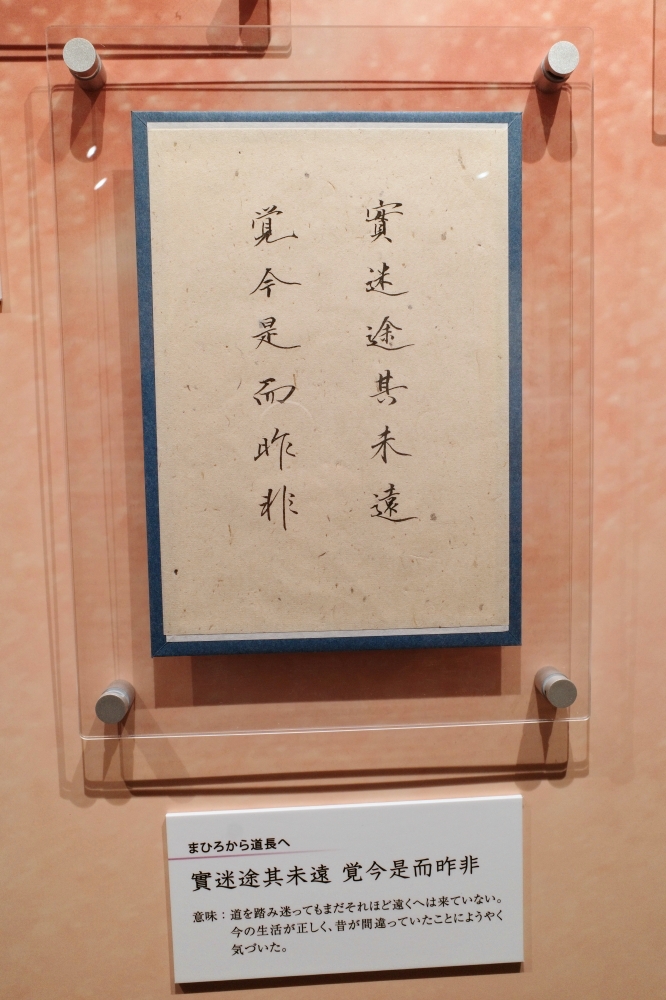 實迷途其未遠
覚今是而昨非
まひろから道長へ
實迷途其未遠 覚今是而昨非
意味：道を踏み迷ってもまだそれほど遠くへは来ていない。
今の生活が正しく、昔が間違っていたことにようやく
気づいた。